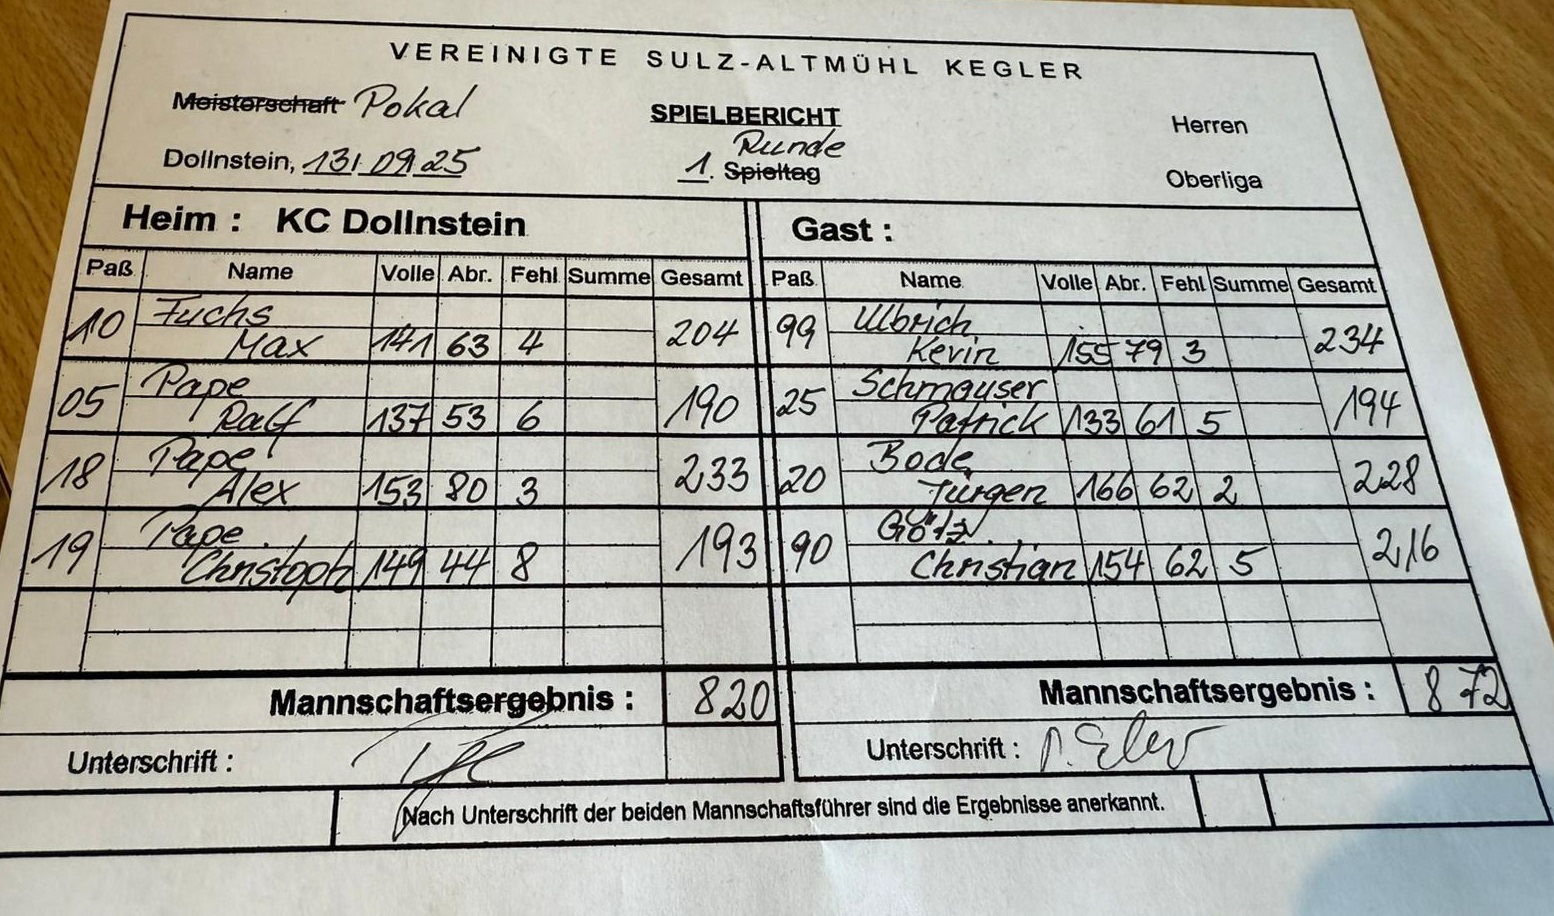 VEREINIGTE SULZ-ALTMÜHL KEGLER
Meisterschaft Pokal
SPIELBERICHT
Herren
Dollnstein, 13.09.25
Runde
1. Spieltag
Oberliga
Heim : KC Dollnstein
Gast :
Paß Name Volle Abr. Fehl Summe Gesamt Paß Name Volle Abr. Fehl Summe Gesamt
10 Fuchs Max 141 63 4 204 99 Ulbrich Kevin 155 79 3 234
05 Pape Ralf 137 53 6 190 25 Schmauser Patrick 133 61 5 194
18 Pape Alex 153 80 3 233 20 Bode Jürgen 166 62 2 228
19 Pape Christoph 149 44 8 193 90 Götz Christian 154 62 5 216
Mannschaftsergebnis : 820 Mannschaftsergebnis : 872
Unterschrift : Unterschrift :
Nach Unterschrift der beiden Mannschaftsführer sind die Ergebnisse anerkannt.